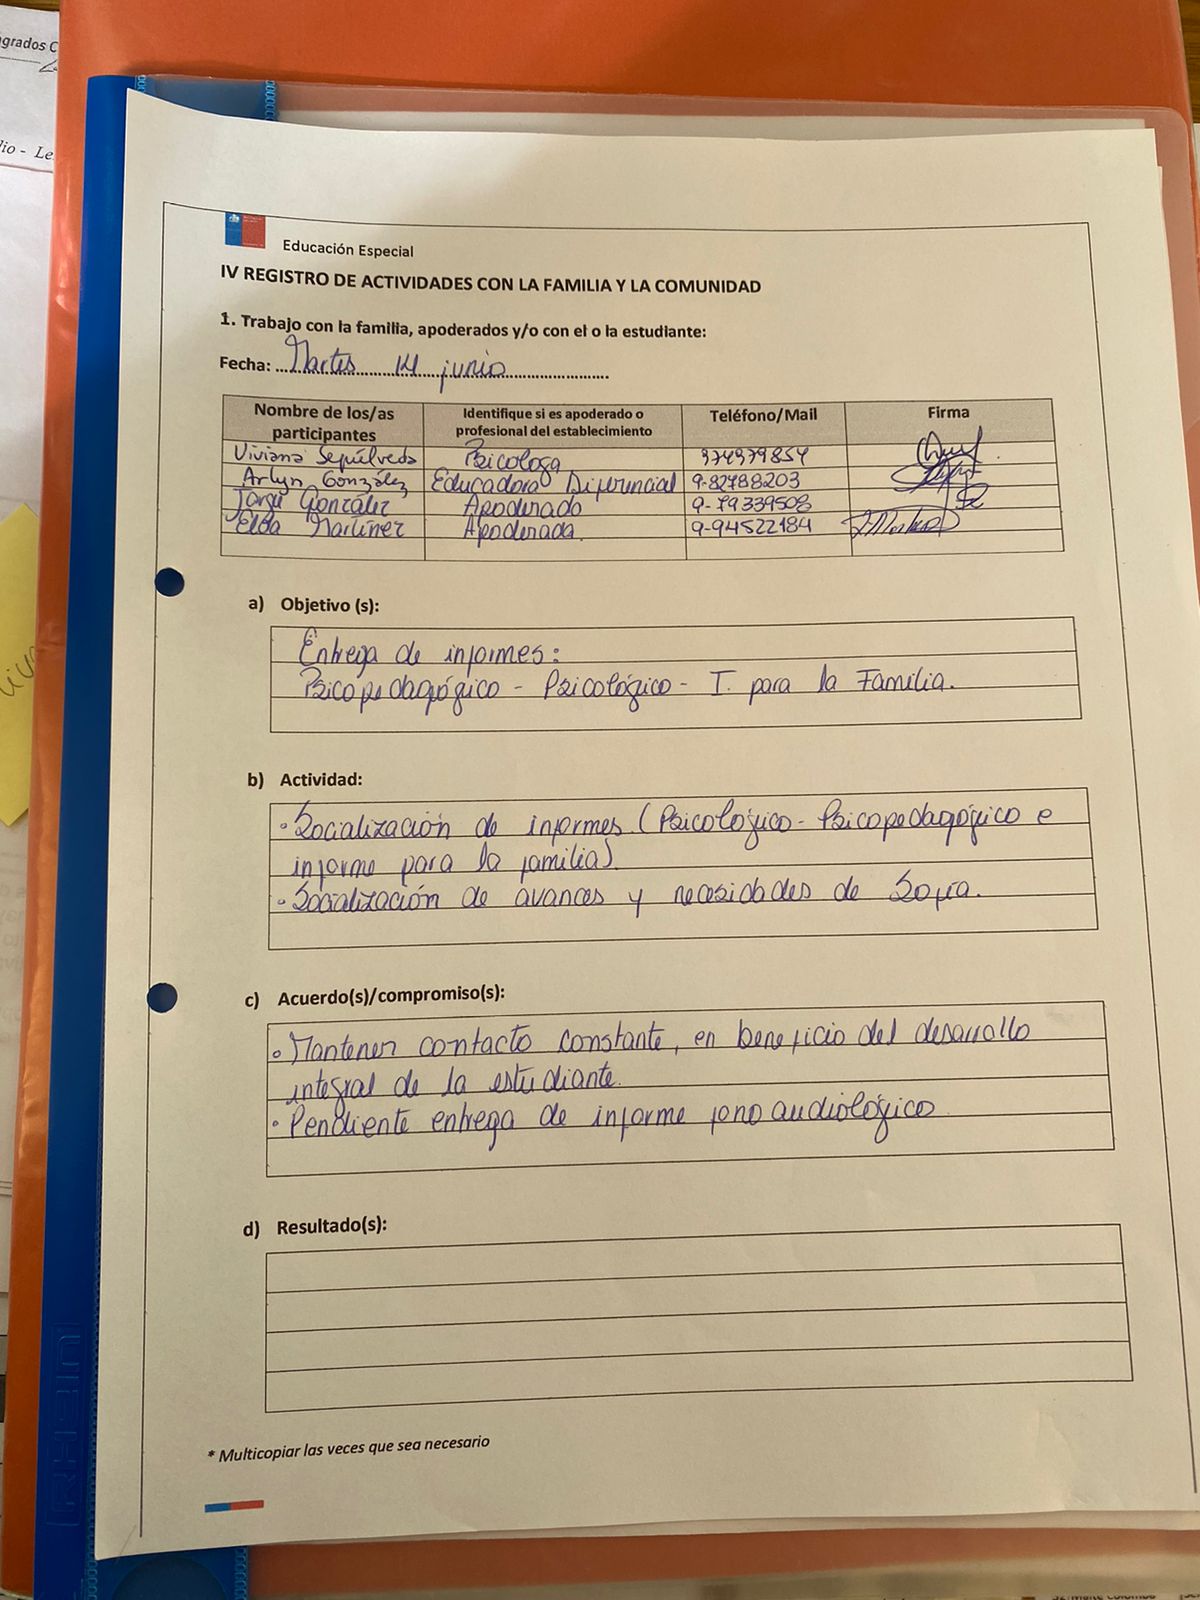 grados C
io - Le
Educación Especial
IV REGISTRO DE ACTIVIDADES CON LA FAMILIA Y LA COMUNIDAD
1. Trabajo con la familia, apoderados y/o con el o la estudiante:
Fecha: Martes 14 junio
Nombre de los/as participantes Identifique si es apoderado o profesional del establecimiento Teléfono/Mail Firma
Viviana Sepúlveda Psicologa 974979854
Arlyn González Educadora Diferencial 9-82788203
Jorge González Apoderado 9-79339508
Elba Martínez Apoderada. 9-94522184
a) Objetivo (s):
Entrega de informes:
Psicopedagógico - Psicológico - I. para la Familia.
b) Actividad:
• Socialización de informes (Psicológico - Psicopedagógico e
informe para la familia).
• Socialización de avances y necesidades de Sofia.
c) Acuerdo(s)/compromiso(s):
• Mantener contacto constante, en beneficio del desarrollo
integral de la estudiante.
• Pendiente entrega de informe fonoaudiológico
d) Resultado(s):
* Multicopiar las veces que sea necesario
RHEIN